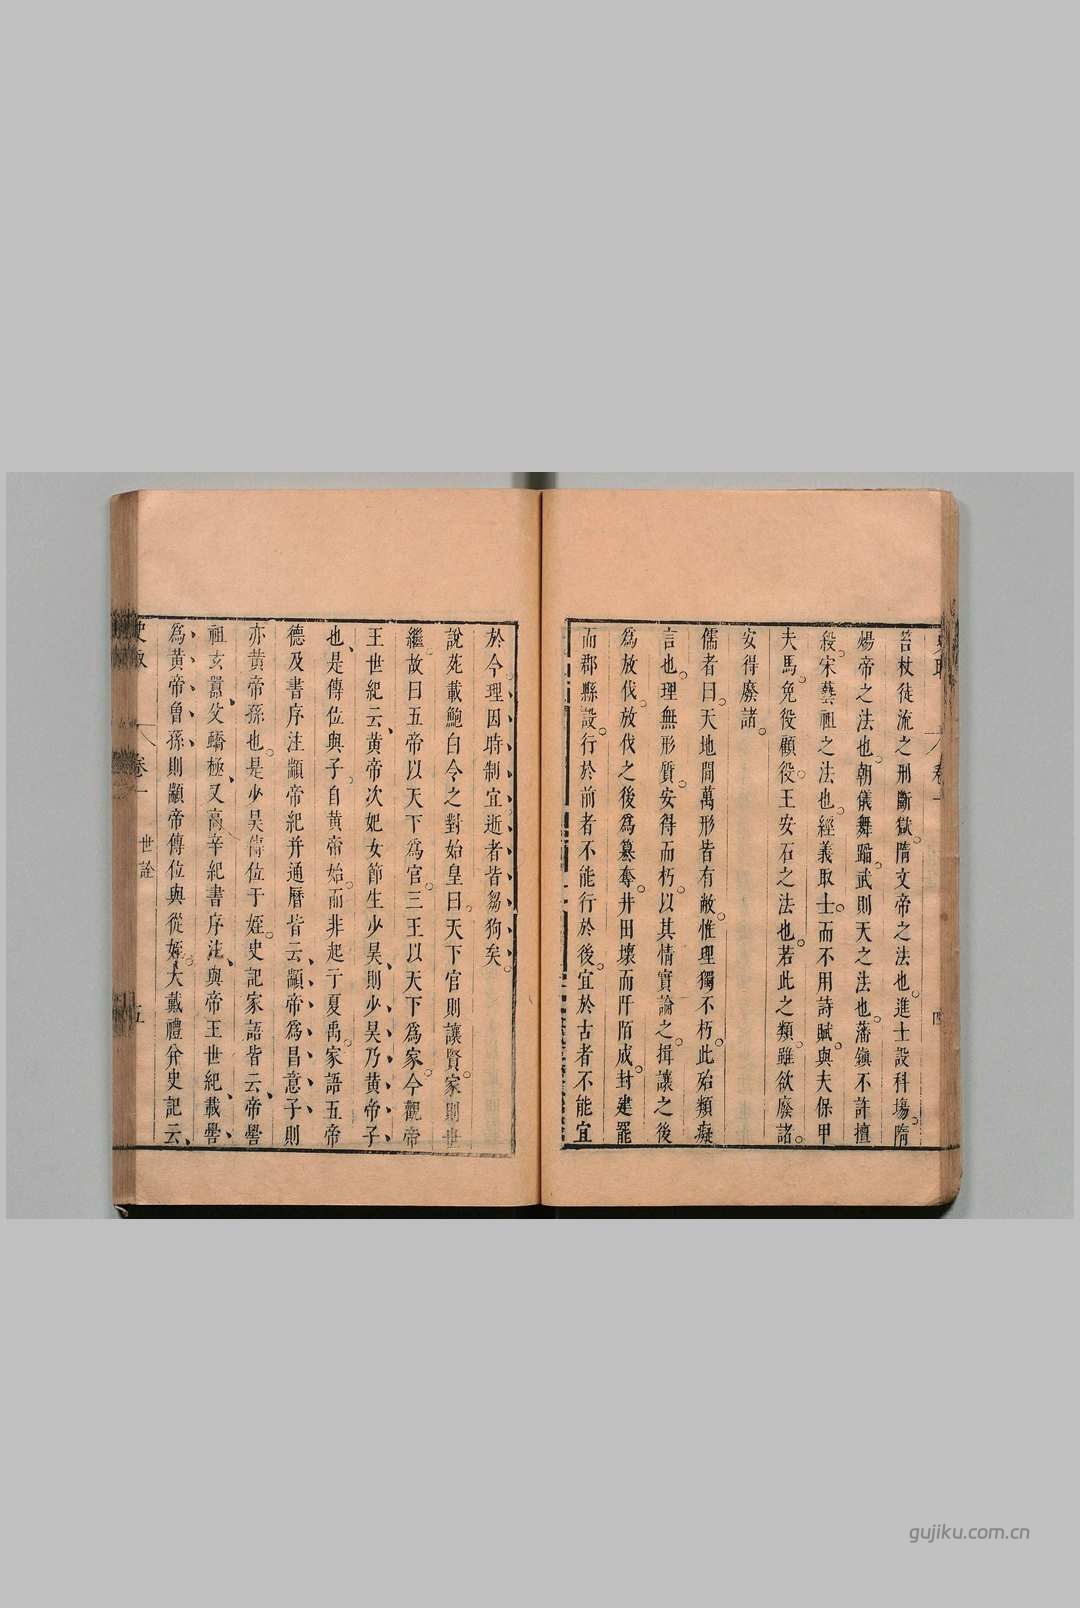 笞杖徒流之刑斷獄。隋文帝之法也。進士設科塲。隋
煬帝之法也。朝儀舞蹈。武則天之法也。藩鎭不許擅
殺。宋藝祖之法也。經義取士。而不用詩賦。與夫保甲
夫馬。免役顧役。王安石之法也。若此之類。雖欲廢諸。
安得廢諸。
儒者曰。天地間萬形皆有敝。惟理獨不朽。此殆類癡
言也。理無形質。安得而朽。以其情實論之。揖讓之後
爲放伐。放伐之後爲篡奪。井田壞而阡陌成。封建罷
而郡縣設。行於前者不能行於後。宜於古者不能宜
於今。理因時制宜。逝者皆芻狗矣。
說苑載鮑白令之對始皇曰。天下官則讓賢。家則世
繼。故曰五帝以天下爲官。三王以天下爲家。今觀帝
王世紀云、黃帝次妃女節生少昊、則少昊乃黃帝子
也、是傳位與子。自黃帝始。而非起于夏禹。家語五帝
德及書序注顓帝紀并通曆皆云、顓帝爲昌意子、則
亦黃帝孫也。是少昊傳位于姪。史記家語皆云、帝嚳
祖玄囂、父蟜極、又高辛紀書序注、與帝王世紀、載嚳、
爲黃帝曾孫、則顓帝傳位與從姪、大戴禮幷史記云、
卷一
世詮
五
四
gujiku.com.cn